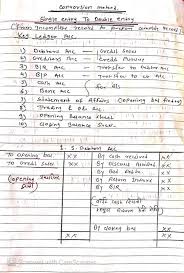 Conversion method.
Single entry To Double entry
(From Incomplete record to complete record)
Key Ledger A/c.
1) Debtors A/c — Credit Sales
2) Creditors A/c — Credit Purchase
3) B/R A/c — Transfer to Debtor A/c
4) B/P A/c — Transfer to Cr A/c
5) Cash A/c
6) Bank A/c
7) Statement of Affairs (Opening bal finding)
8) Trading & P/L A/c.
9) Opening Balance Sheet
10) Closing Balance Sheet.
1. S. Debtors A/c
To opening bal. xx By Cash received xx
To credit Sales xx By Discount Allowed xx
By Bad Debts xx
By Return Inward xx
By B/R xx
(opening
By closing bal xx
Scanned with CamScanner